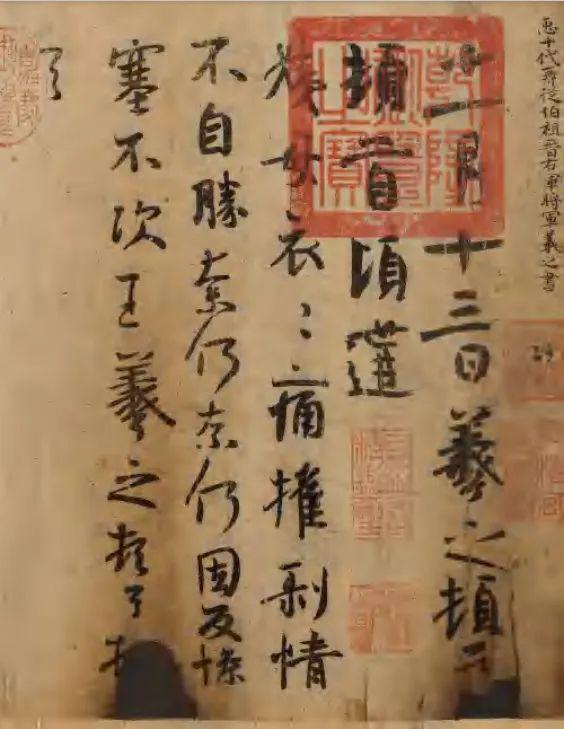 十代再從伯祖晉右軍將軍羲之書
十一月十三日羲之頓首
頓首頃遘
姨母哀〻痛摧剝情
不自勝奈何奈何因反慘
塞不次王羲之頓首頓
首
乾隆御覽之寶